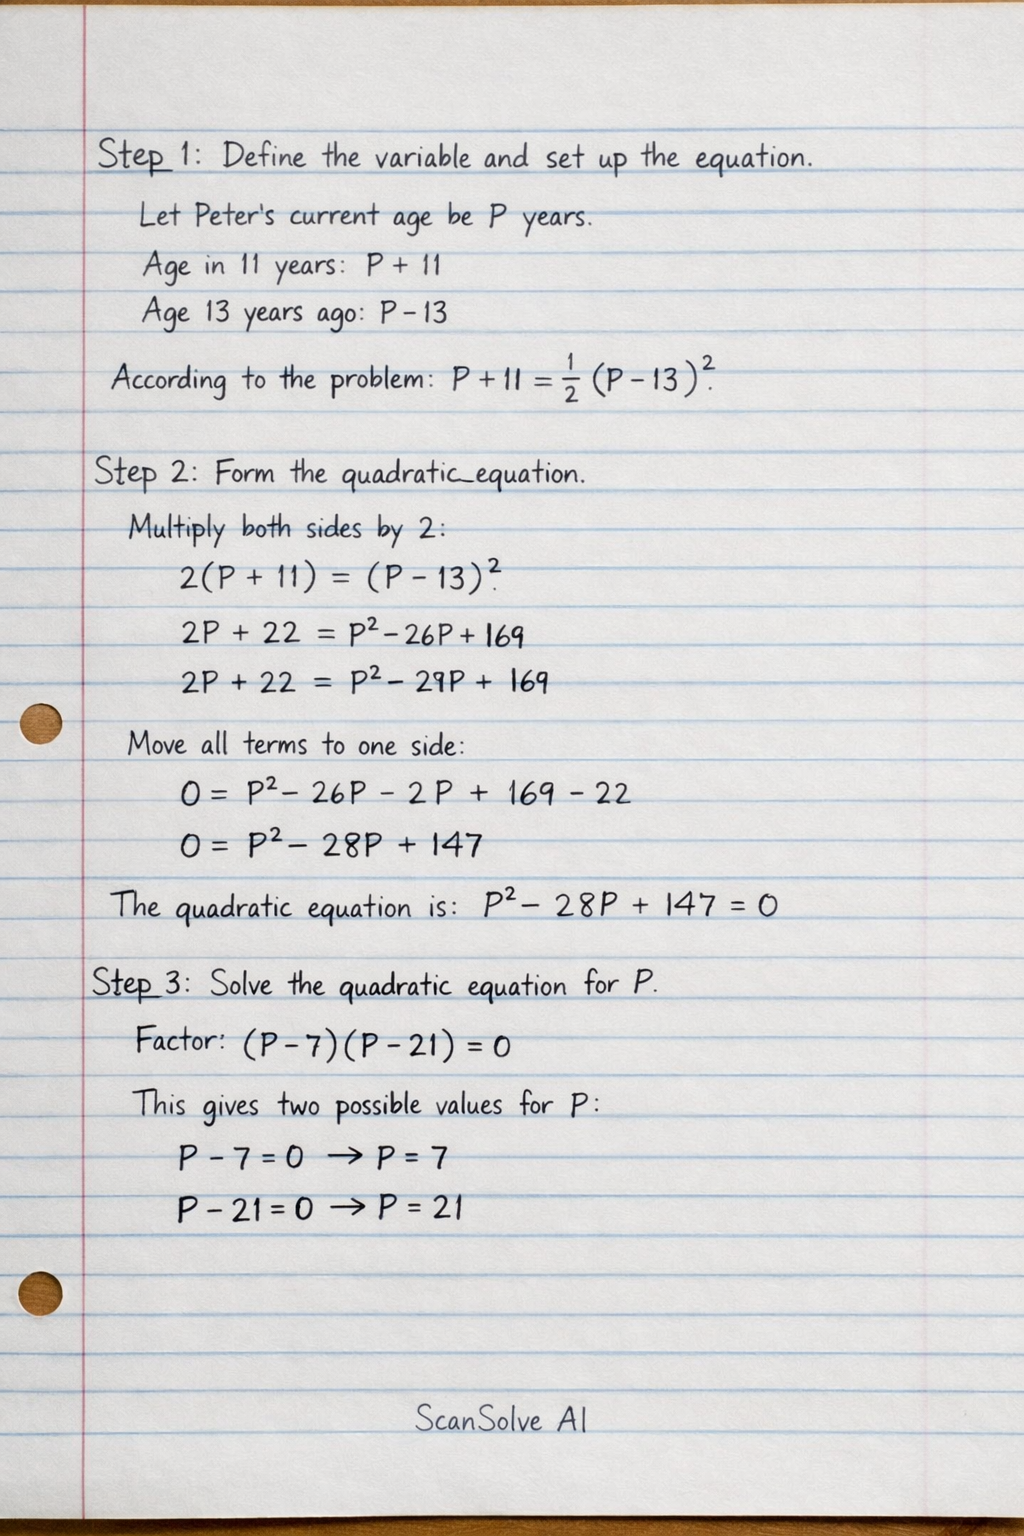 Step 1: Define the variable and set up the equation.
Let Peter's current age be P years.
Age in 11 years: P + 11
Age 13 years ago: P - 13
According to the problem: P + 11 = 1/2 (P - 13)².
Step 2: Form the quadratic equation.
Multiply both sides by 2:
2(P + 11) = (P - 13)².
2P + 22 = P² - 26P + 169
2P + 22 = P² - 29P + 169
Move all terms to one side:
0 = P² - 26P - 2P + 169 - 22
0 = P² - 28P + 147
The quadratic equation is: P² - 28P + 147 = 0
Step 3: Solve the quadratic equation for P.
Factor: (P - 7)(P - 21) = 0
This gives two possible values for P:
P - 7 = 0 → P = 7
P - 21 = 0 → P = 21
ScanSolve AI